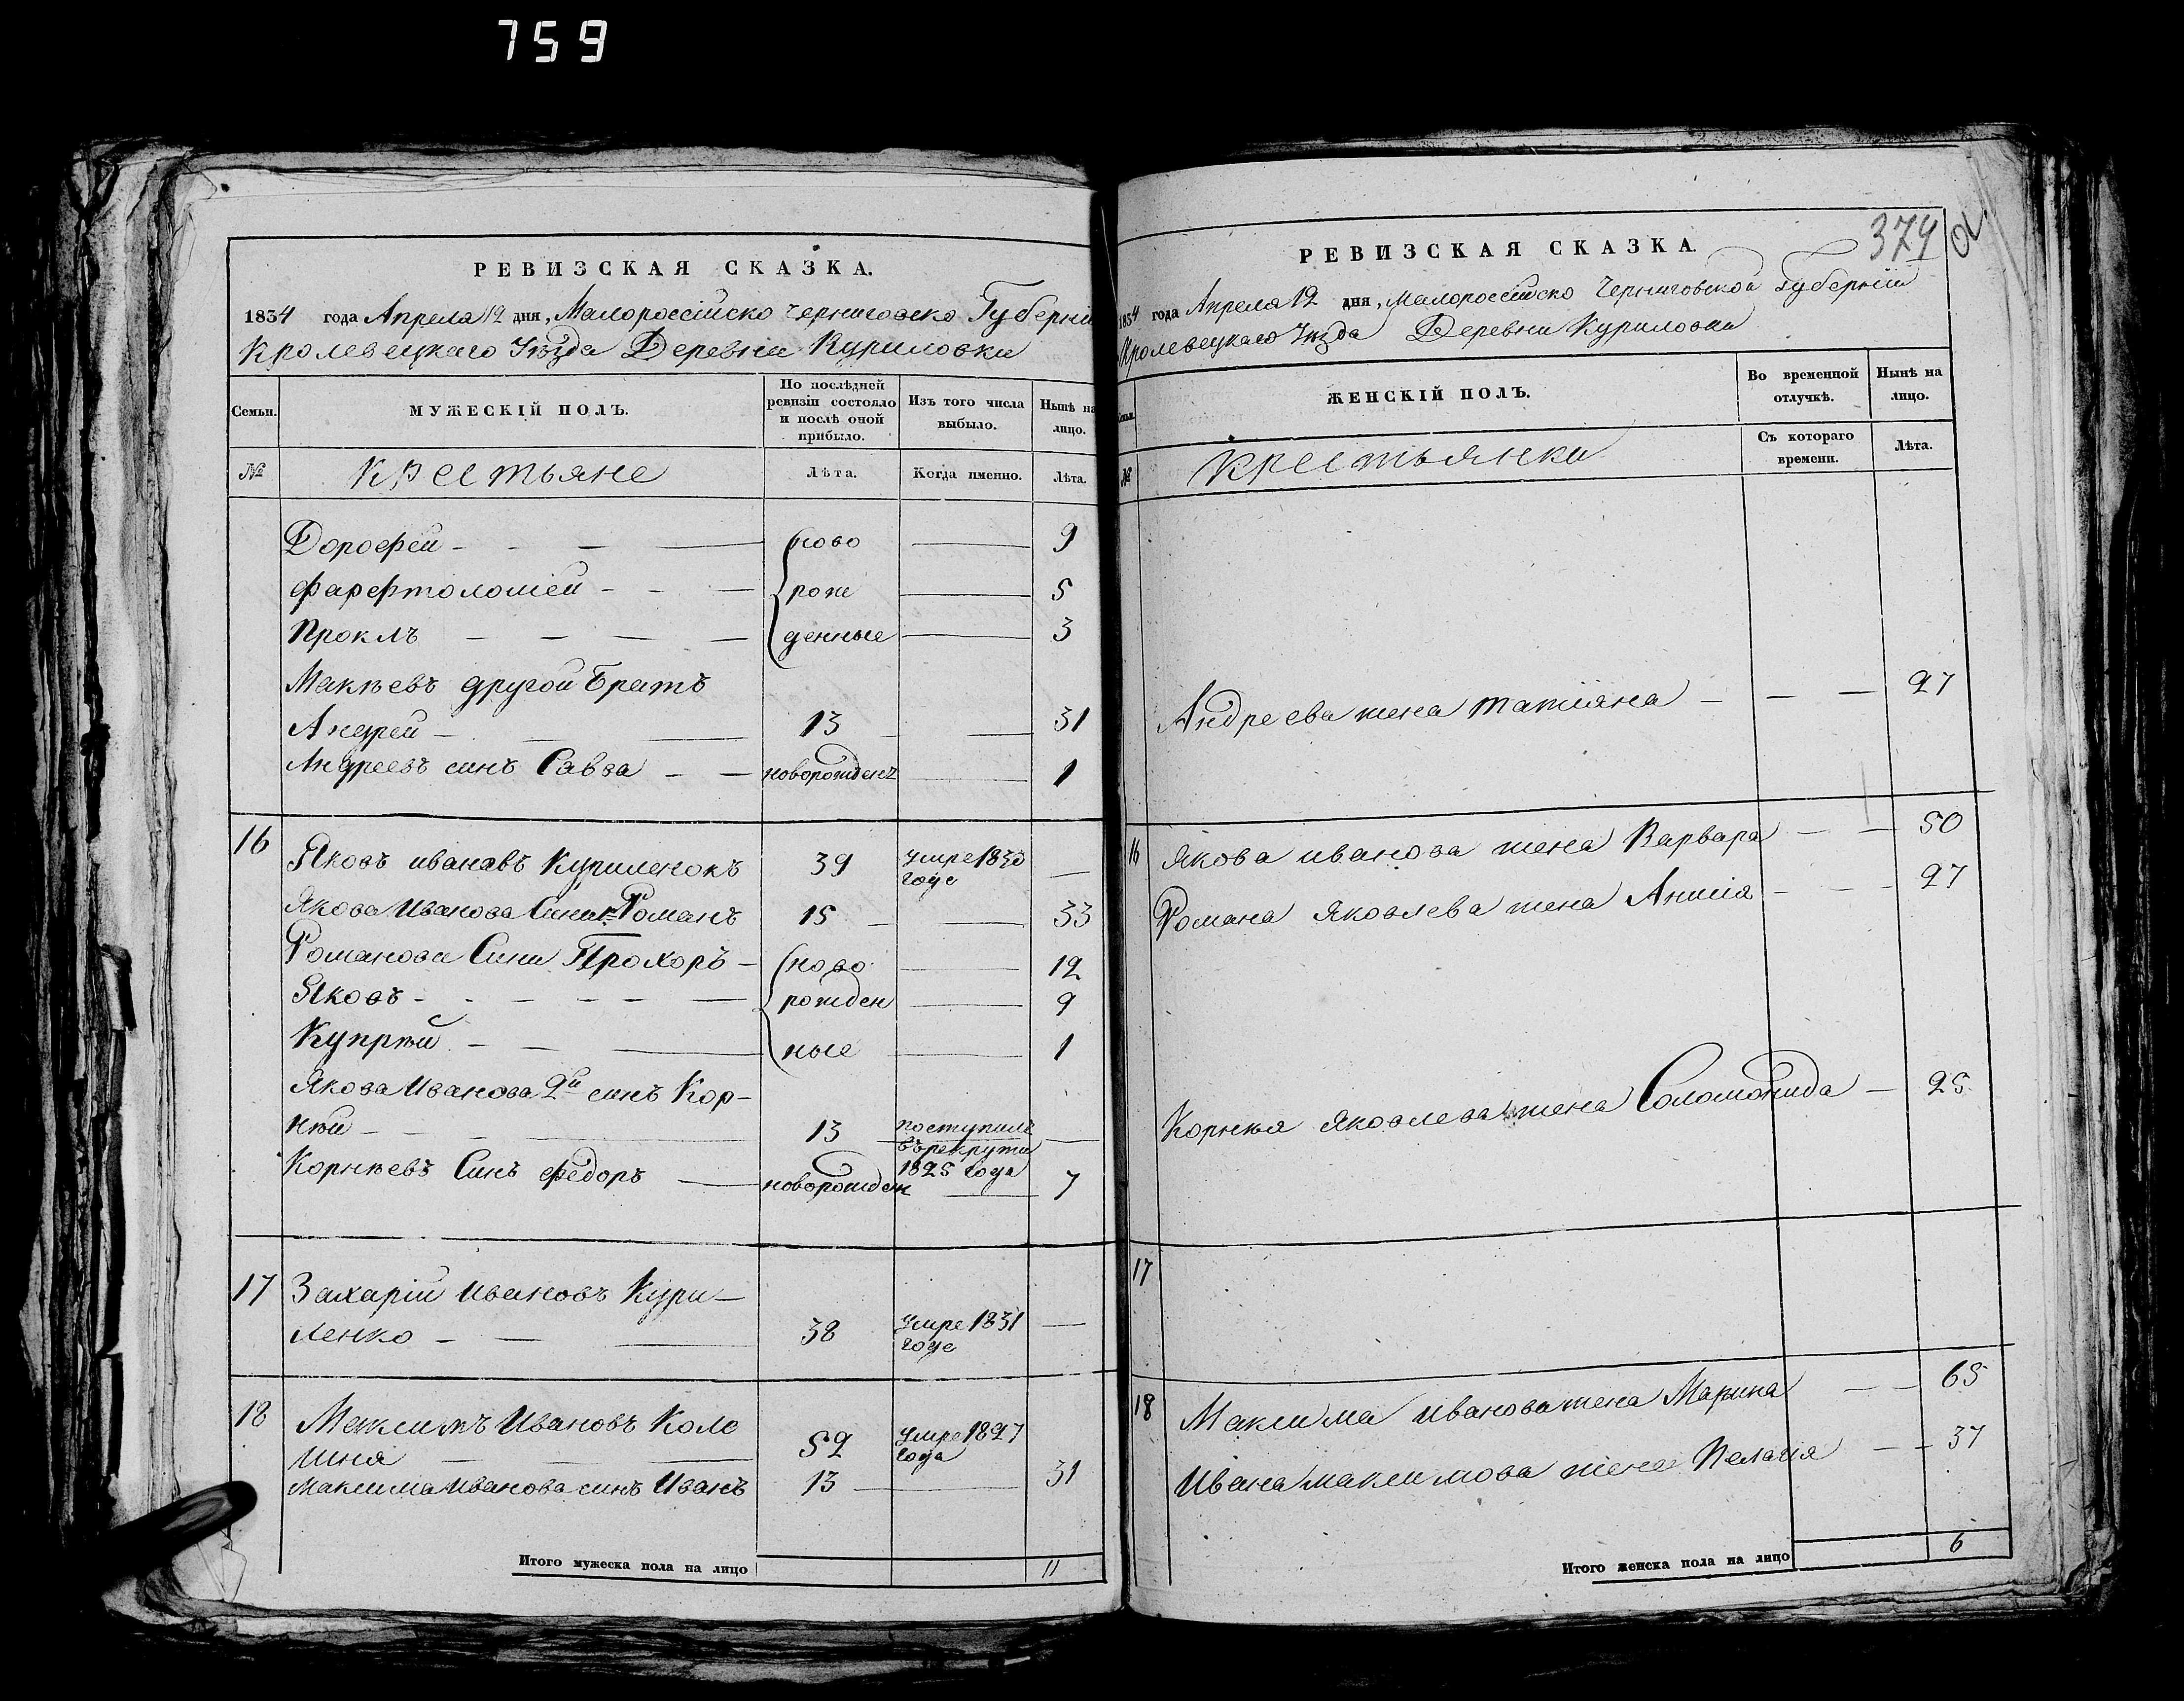 759
РЕВИЗСКАЯ СКАЗКА.
1834 года Апреля 12 дня, Малороссійско Черниговско Губерніи
Кролевецкаго Уѣзда Деревни Куриловки
Семьи.
МУЖЕСКІЙ ПОЛЪ.
По послѣдней ревизіи состояло и послѣ оной прибыло.
Изъ того числа выбыло.
Нынѣ на лицо.
№
Крестьяне
Лѣта.
Когда именно.
Лѣта.
Дорофей - - - ново 9
Фарфтоломіей - - - роже 5
Проклъ - - - - денные 3
Макѣевъ другой Братъ
Андрей - - - 13 - 31
Андреевъ синъ Савва - - новорожденъ 1
16 Яковъ ивановъ Куриленокъ 39 умре 1830 годе —
Якова Иванова Сини Романъ 15 - 33
Романови Сини Прохоръ - ново 12
Яковъ - - - - - рожден 9
Купрѣй - - - ные 1
Якова Иванова 2й синъ Кор-
нѣй - - - 13 поступилъ въ рекрути 1825 года —
Корнѣевъ Синъ Федоръ — новорожден 7
17 Захарій Ивановъ Кури-
ленко - - - 38 умре 1831 годе —
18 Максимъ Ивановъ Коле
шня - - - 52 умре 1827 года
Максима Иванова синъ Иванъ 13 - 31
Итого мужеска пола на лицо 11
379
РЕВИЗСКАЯ СКАЗКА.
1834 года Апреля 12 дня, Малороссійско Черниговской Губерніи
Кролевецкаго Уѣзда Деревни Куриловки
Семьи.
ЖЕНСКІЙ ПОЛЪ.
Во временной отлучкѣ.
Нынѣ на лицо.
№
Крестьянки
Съ котораго времени.
Лѣта.
Андреева жена Татіяна - - - 27
16 Якова иванова жена Варвара - - 50
Романа Яковлева жена Анисія - - - 27
Корнѣя Яковлева жена Соломонида - 25
17
18 Максима иванова жена Марина - - 65
Ивана максимова жена Пелагія - - 37
Итого женска пола на лицо 6